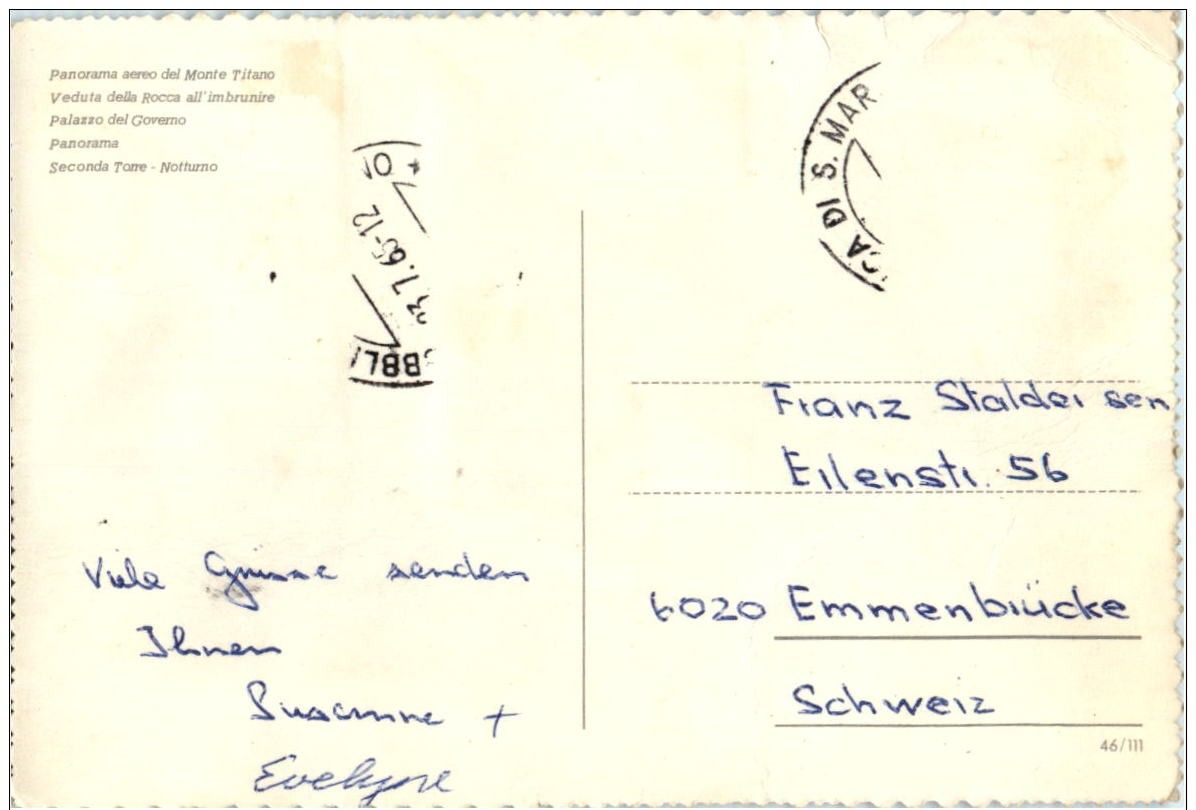 Panorama aereo del Monte Titano
Veduta della Rocca all'imbrunire
Palazzo del Governo
Panorama
Seconda Torre - Notturno
CA DI S. MAR
BBLI
3.7.65-12
Viele Grüsse senden
Ihnen
Susanne +
Evelyne
Franz Stalder sen
Erlenstr. 56
6020 Emmenbrücke
Schweiz
46/111